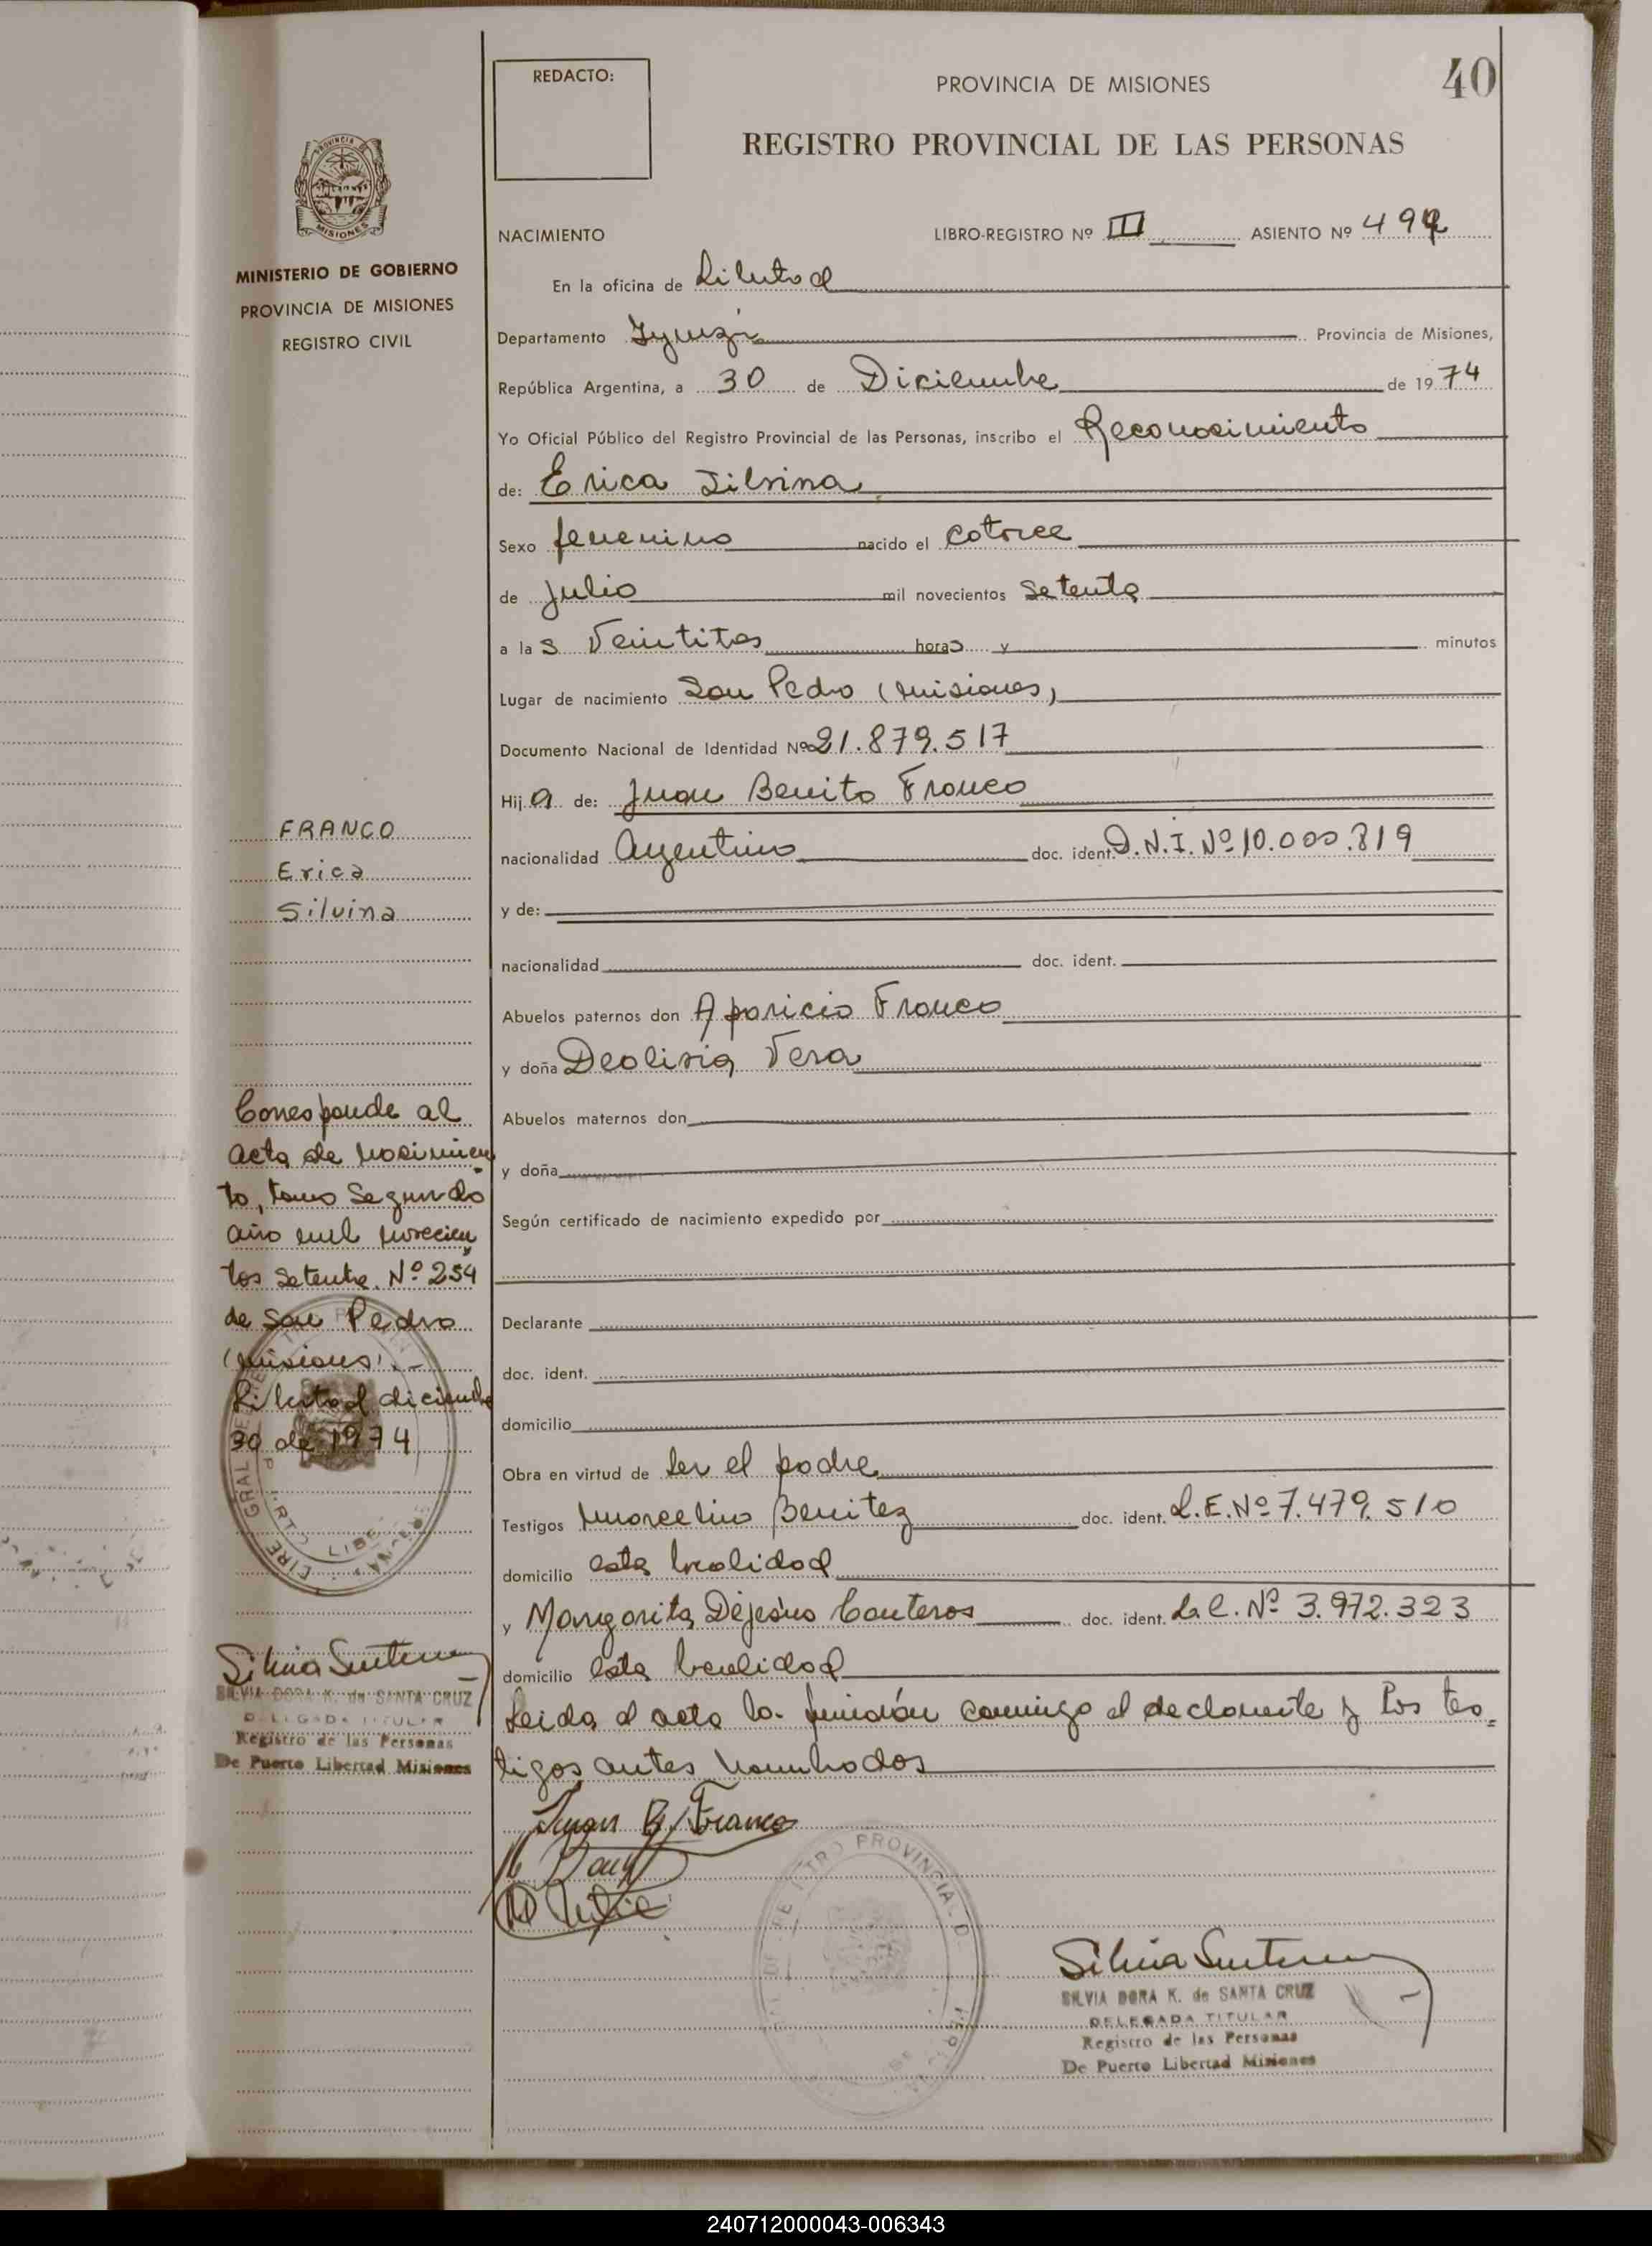 REDACTO:
PROVINCIA DE MISIONES
40
REGISTRO PROVINCIAL DE LAS PERSONAS
PROVINCIA DE
MISIONES
MINISTERIO DE GOBIERNO
PROVINCIA DE MISIONES
REGISTRO CIVIL
NACIMIENTO LIBRO-REGISTRO Nº III ASIENTO Nº
En la oficina de Libertad
Departamento Iguazú Provincia de Misiones,
República Argentina, a 30 de Diciembre de 1974
Yo Oficial Público del Registro Provincial de las Personas, inscribo el Reconocimiento
de: Erica Silvina
Sexo femenino nacido el catorce
de julio mil novecientos setenta
a las veintitres horas y minutos
Lugar de nacimiento San Pedro (Misiones)
Documento Nacional de Identidad Nº 21.879.517
Hija de: Juan Benito Franco
nacionalidad Argentino doc. ident. D.N.I. Nº 10.000.819
y de:
nacionalidad doc. ident.
Abuelos paternos don Aparicio Franco
y doña Deolisia Vera
Abuelos maternos don
y doña
Según certificado de nacimiento expedido por
Declarante
doc. ident.
domicilio
Obra en virtud de ser el padre
Testigos Marcelino Benitez doc. ident. L.E. Nº 7.479.510
domicilio esta localidad
y Margarita Dejesús Canteros doc. ident. L.C. Nº 3.972.323
domicilio esta localidad
Leida el acta la firmarón conmigo el declarante y los tes
tigos antes nombrados
Juan B. Franco
FRANCO
Erica
Silvina
Corresponde al
acta de nacimien
to, tomo segundo
año mil novecien
tos setenta. Nº 254
de San Pedro
(Misiones).-
Libertad diciembre
30 de 1974
SILVIA DORA K. de SANTA CRUZ
DELEGADA TITULAR
Registro de las Personas
De Puerto Libertad Misiones
SILVIA DORA K. de SANTA CRUZ
DELEGADA TITULAR
Registro de las Personas
De Puerto Libertad Misiones
240712000043-006343